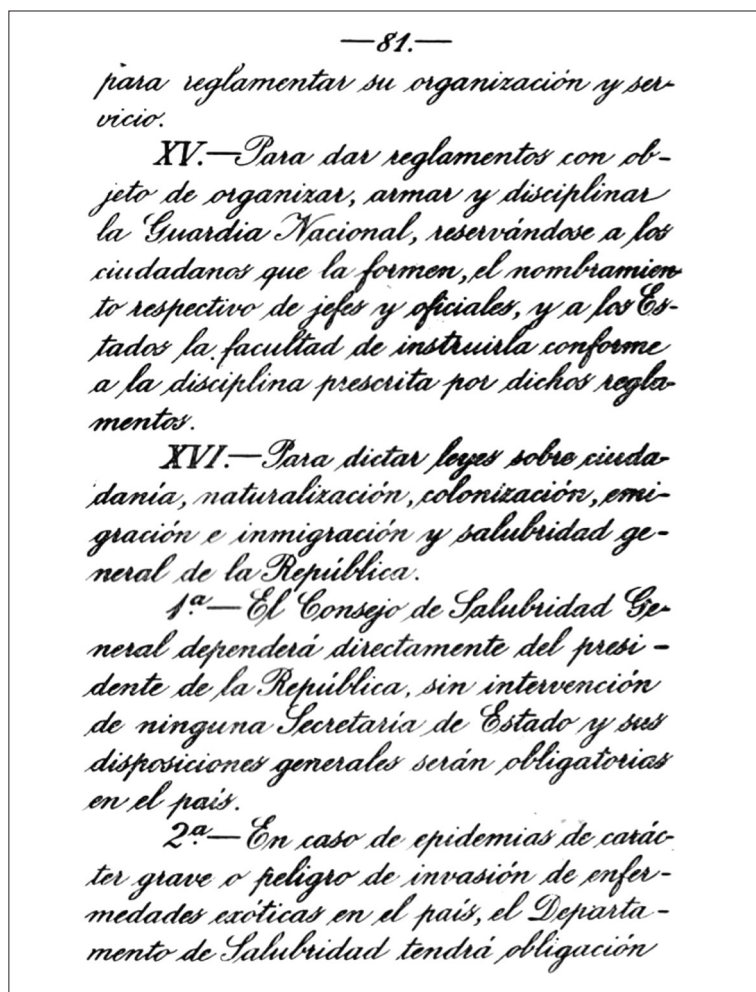 —81.—
para reglamentar su organización y ser-
vicio.
XV.—Para dar reglamentos con ob-
jeto de organizar, armar y disciplinar
la Guardia Nacional, reservándose a los
ciudadanos que la formen, el nombramien-
to respectivo de jefes y oficiales, y a los Es-
tados la facultad de instruirla conforme
a la disciplina prescrita por dichos regla-
mentos.
XVI.—Para dictar leyes sobre ciuda-
danía, naturalización, colonización, emi-
gración e inmigración y salubridad ge-
neral de la República.
1ª.—El Consejo de Salubridad Ge-
neral dependerá directamente del presi-
dente de la República, sin intervención
de ninguna Secretaría de Estado y sus
disposiciones generales serán obligatorias
en el país.
2ª.—En caso de epidemias de carác-
ter grave o peligro de invasión de enfer-
medades exóticas en el país, el Departa-
mento de Salubridad tendrá obligación